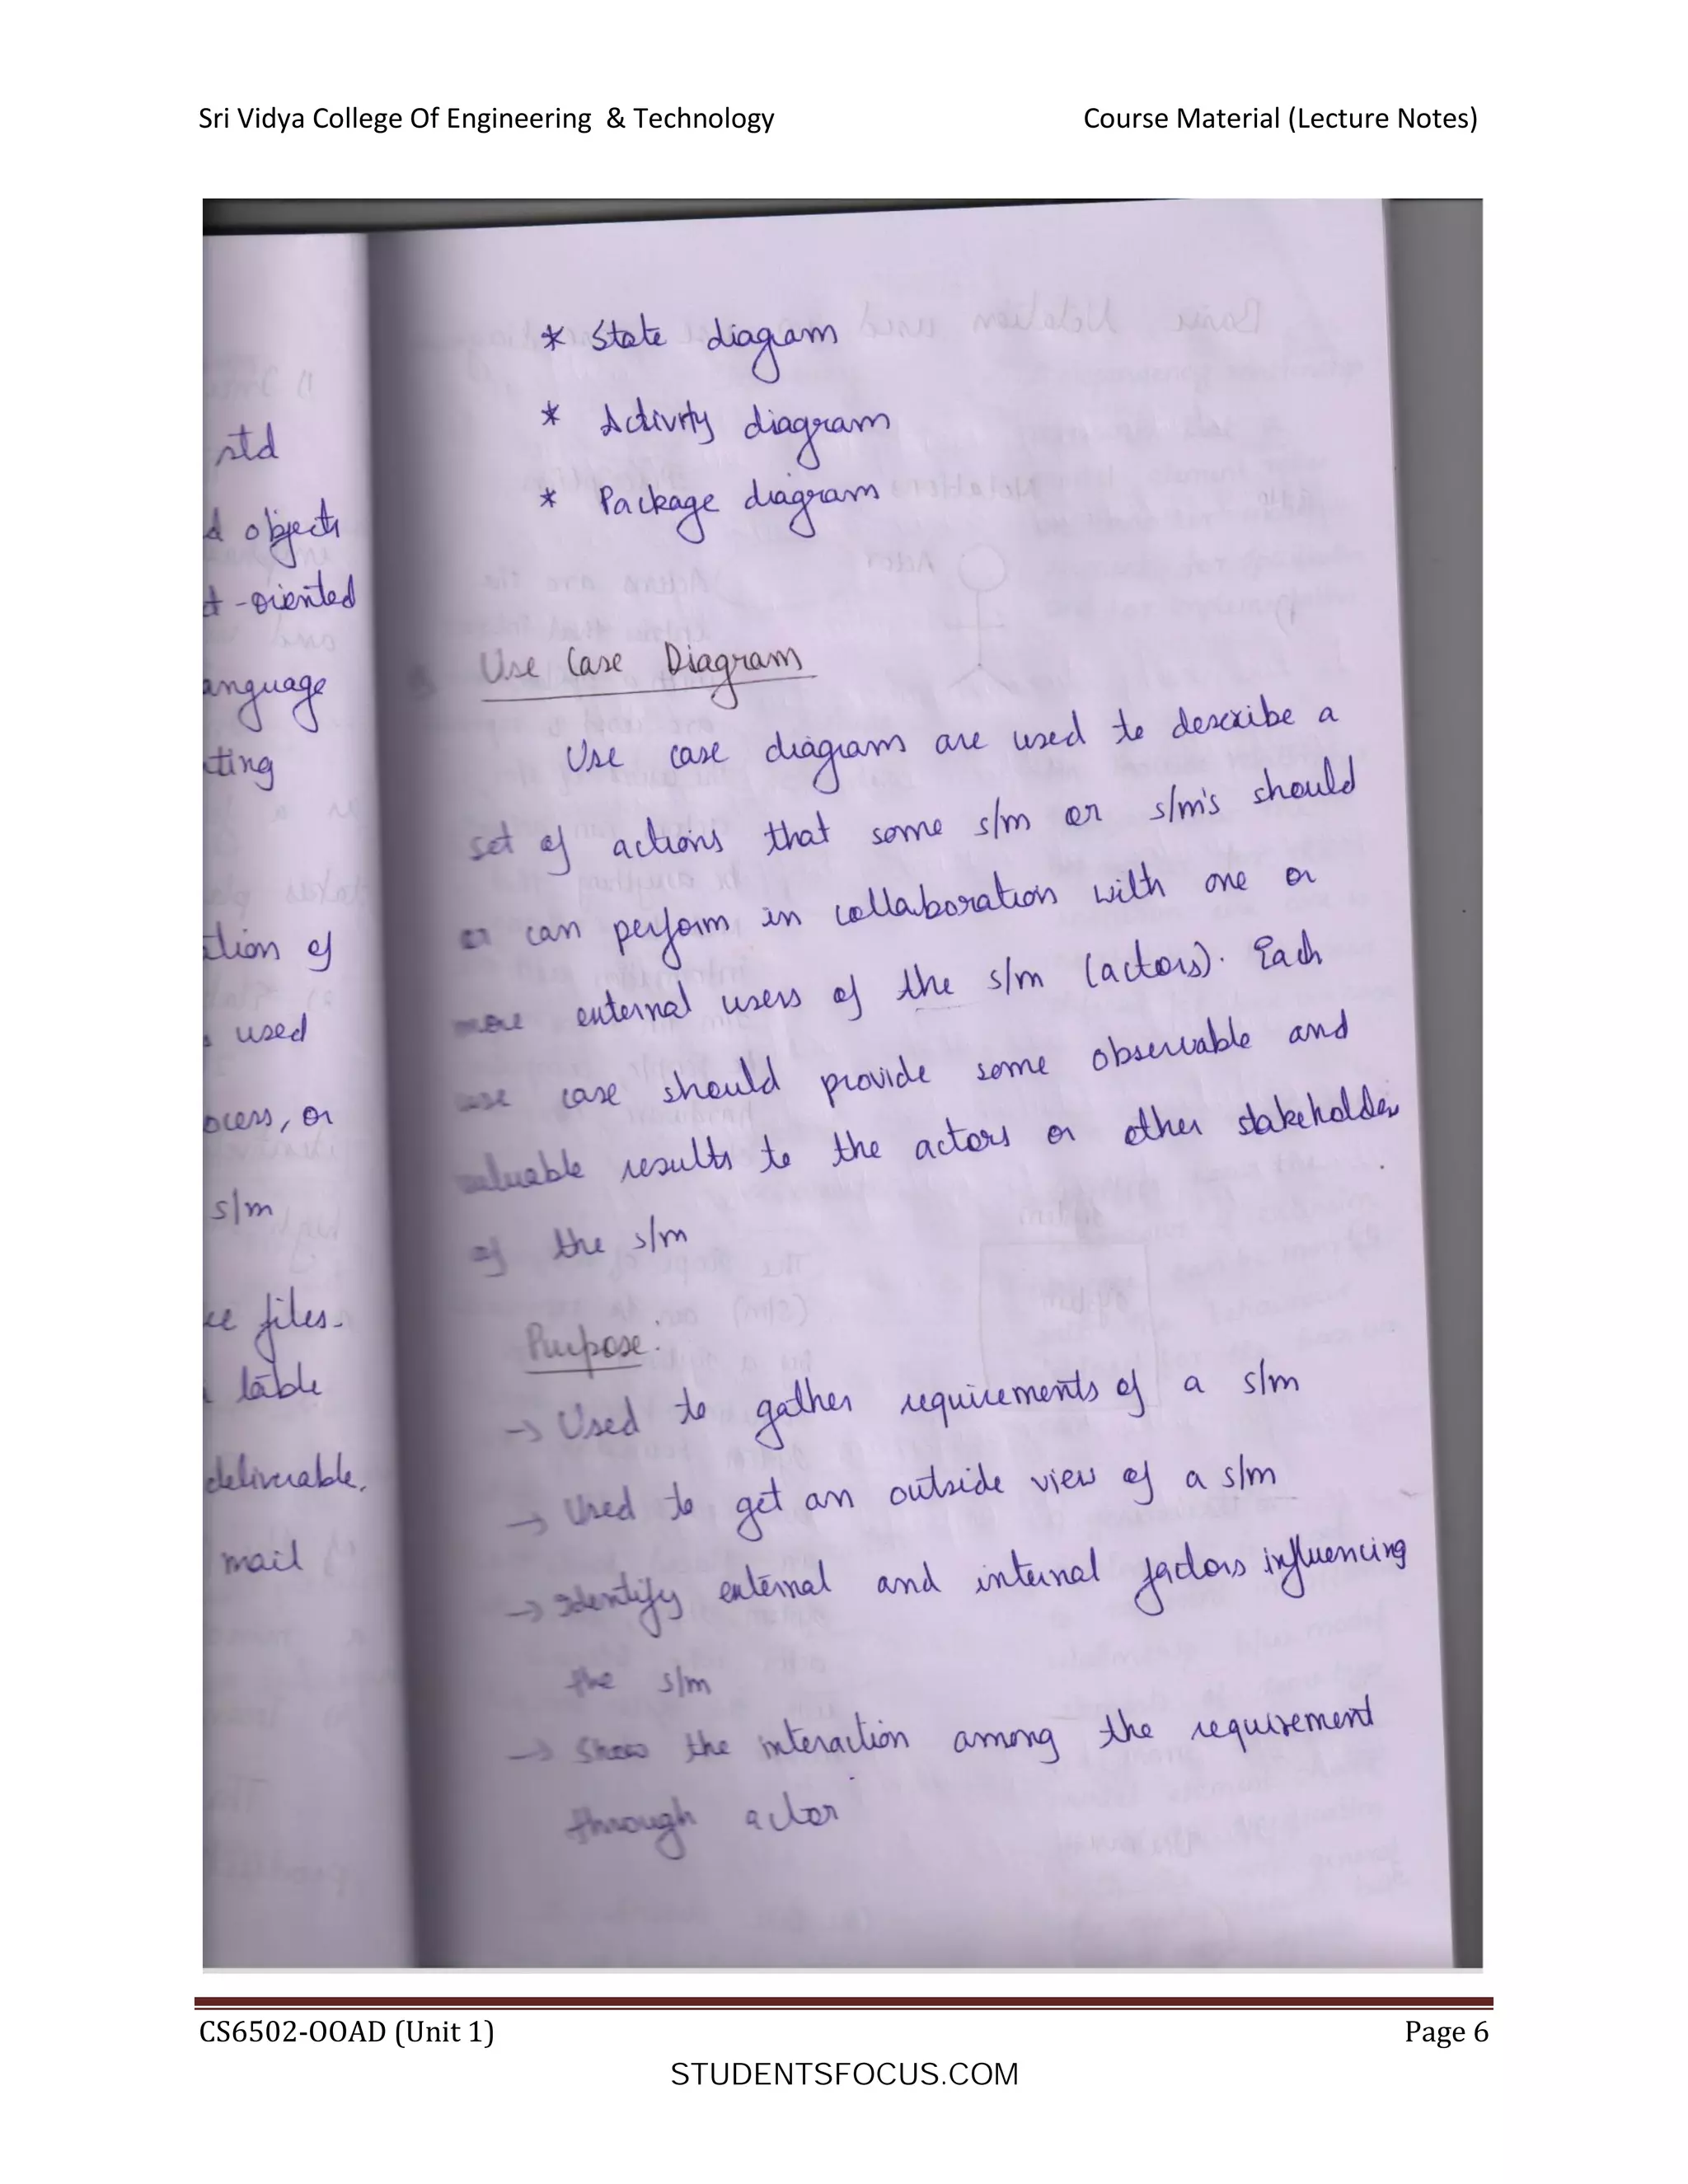 Sri Vidya College Of Engineering & Technology Course Material (Lecture Notes)
* State diagam
* Activity diagram
* Package diagram
Use Case Diagram
Use case diagram are used to describe a
set of actions that some s/m or s/m's should
or can perform in collaboration with one or
more external users of the s/m (actors). Each
use case should provide some observable and
valuable results to the actors or other stakeholder
of the s/m
Purpose.
→ Used to gather requirements of a s/m
→ Used to get an outside view of a s/m
→ Identify external and internal factors influencing
the s/m
→ Show the interaction among the requirement
through actor
std
objects
-oriented
anguage
cting
ation of
used
ocess, or
s/m
ce files.
table
deliverable,
mail
CS6502-OOAD (Unit 1) Page 6
STUDENTSFOCUS.COM